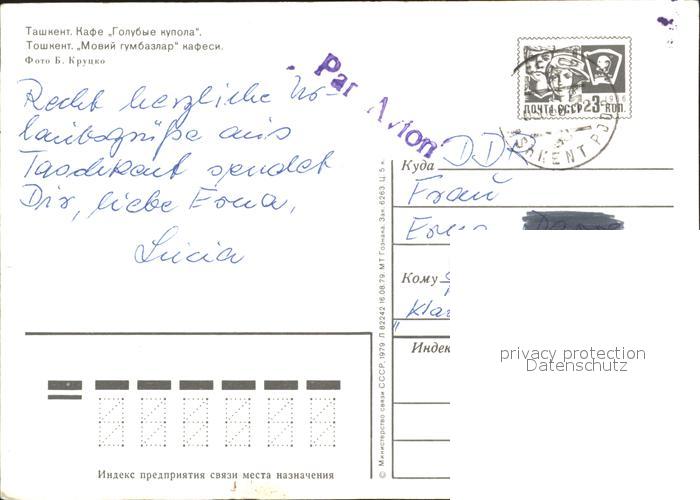 Ташкент. Кафе „Голубые купола".
Тошкент. „Мовий гумбазлар" кафеси.
Фото Б. Круцко
Par Avion
ПОЧТА СССР 3 КОП.
1966
Recht herzliche Ur-
laubsgrüße aus
Taschkent sendet
Dir, liebe Erna,
Lucia
Куда DDR
Frau
Кому
Индек
© Министерство связи СССР, 1979. Л 82242 16.08.79. МТ Гознака. Зак. 6263. Ц. 5 к.
privacy protection
Datenschutz
Индекс предприятия связи места назначения